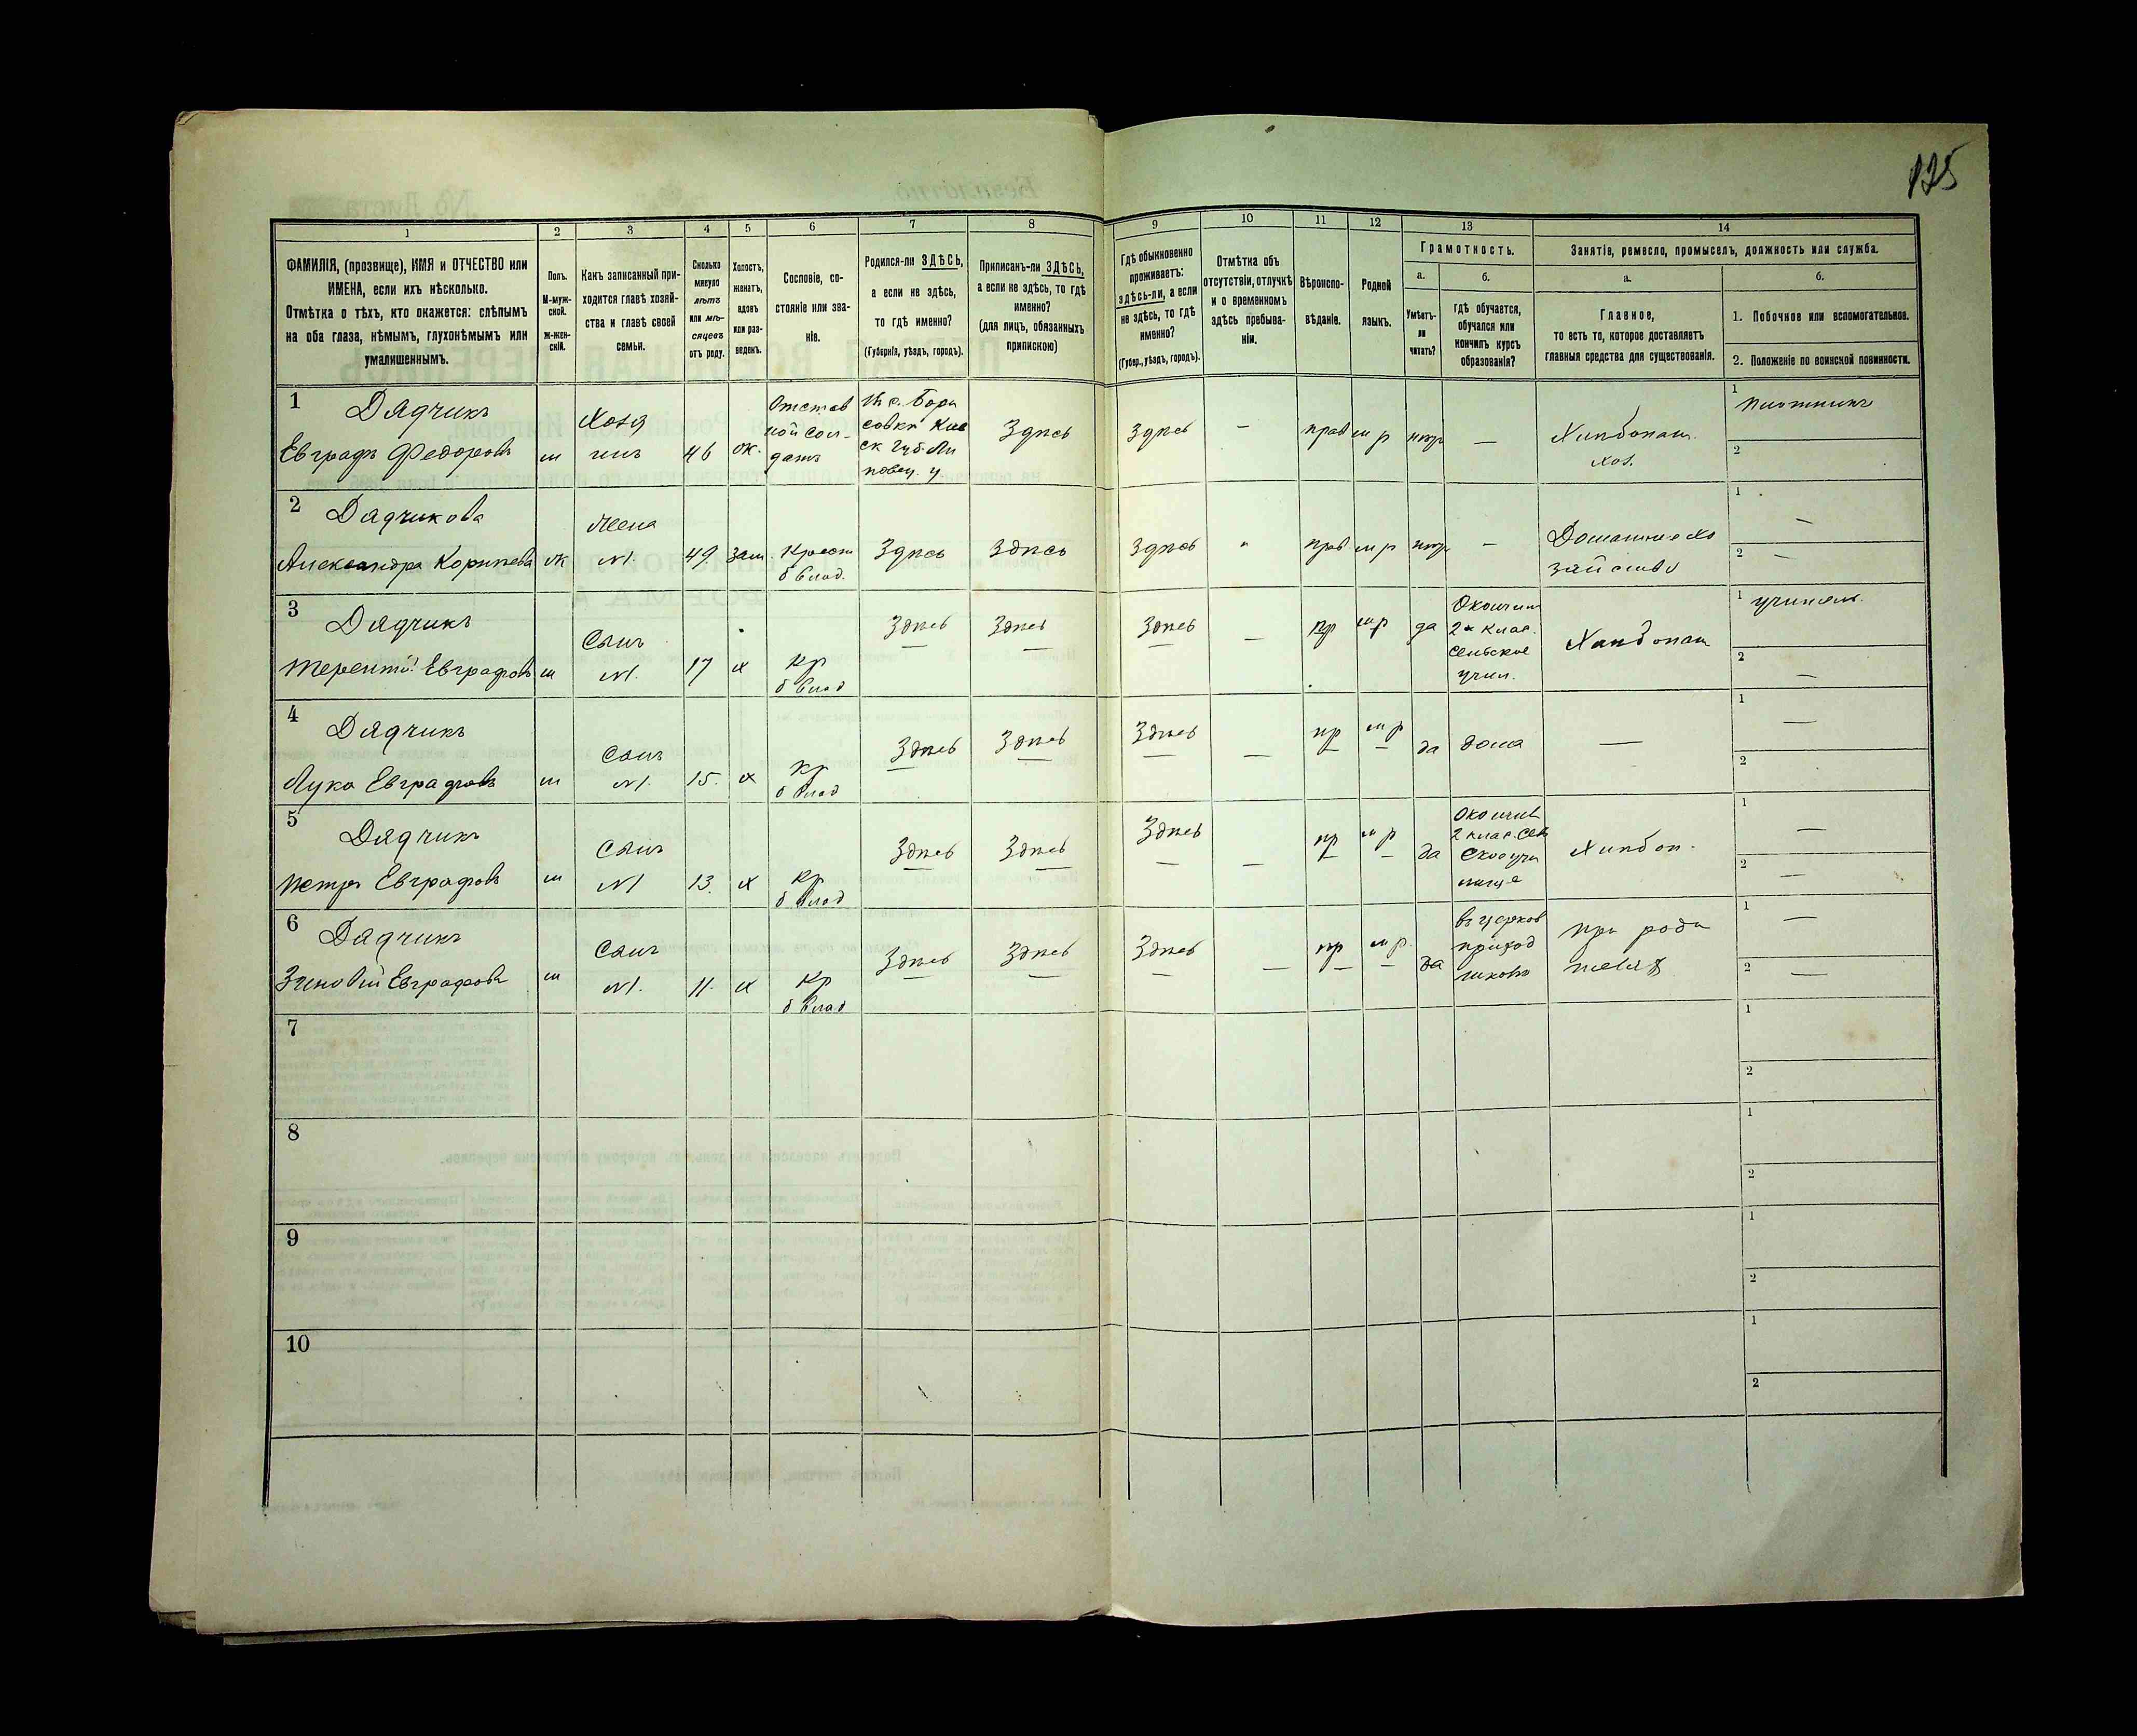 125
1
2
3
4
5
6
7
8
9
10
11
12
13
14
ФАМИЛІЯ, (прозвище), ИМЯ и ОТЧЕСТВО или
ИМЕНА, если ихъ нѣсколько.
Отмѣтка о тѣхъ, кто окажется: слѣпымъ
на оба глаза, нѣмымъ, глухонѣмымъ или
умалишеннымъ.
Полъ.
М-муж-
ской.
Ж-жен-
скій.
Какъ записанный при-
ходится главѣ хозяй-
ства и главѣ своей
семьи.
Сколько
минуло
лѣтъ
или мѣ-
сяцевъ
отъ роду.
Холостъ,
женатъ,
вдовъ
или раз-
веденъ.
Сословіе, со-
стояніе или зва-
ніе.
Родился-ли ЗДѢСЬ,
а если не здѣсь,
то гдѣ именно?
(Губернія, уѣздъ, городъ).
Приписанъ-ли ЗДѢСЬ,
а если не здѣсь, то гдѣ
именно?
(для лицъ, обязанныхъ
припискою)
Гдѣ обыкновенно
проживаетъ:
здѣсь-ли, а если
не здѣсь, то гдѣ
именно?
(Губер., уѣздъ, городъ).
Отмѣтка объ
отсутствіи, отлучкѣ
и о временномъ
здѣсь пребыва-
ніи.
Вѣроиспо-
вѣданіе.
Родной
языкъ.
Грамотность.
а.
б.
Умѣетъ-
ли
читать?
Гдѣ обучается,
обучался или
кончилъ курсъ
образованія?
Занятіе, ремесло, промыселъ, должность или служба.
а.
б.
Главное,
то есть то, которое доставляетъ
главныя средства для существованія.
1. Побочное или вспомогательное.
2. Положеніе по воинской повинности.
1
Дядчикъ
Евграфъ Федоровъ
м
Хозя
инъ
46
ж.
Отстав
ной сол-
датъ
Въ с. Бори
совки Кіев
ск губ. Ли
повец. у.
Здѣсь
Здѣсь
—
прав
м р
нѣтъ
—
Хлѣбопаш.
хоз.
1
плотникъ
2
2
Дядчикова
Александра Корнѣева
ж
Жена
N1.
49
зам.
Крест
б влад.
Здѣсь
Здѣсь
Здѣсь
"
прав
м р
нѣтъ
—
Домашнее хо
зяйство
1 —
2 —
3
Дядчикъ
Терентій Евграфовъ
м
Сынъ
N1.
17
х
кр
б влад
Здѣсь
Здѣсь
Здѣсь
—
пр
м р
да
Окончил
2х клас.
сельское
учил.
Хлѣбопаш
1 учитель.
2 —
4
Дядчикъ
Лука Евграфовъ
м
Сынъ
N1.
15.
х
кр
б влад
Здѣсь
Здѣсь
Здѣсь
—
пр
м р
да
дома
—
1 —
2
5
Дядчикъ
Петръ Евграфовъ
м
Сынъ
N1
13.
х
кр
б влад
Здѣсь
Здѣсь
Здѣсь
—
пр
м р
да
Окончил
2 клас. сель
ское учи
лище
Хлѣбоп.
1 —
2 —
6
Дядчикъ
Зиновій Евграфовъ
м
Сынъ
N1.
11.
х
кр
б влад
Здѣсь
Здѣсь
Здѣсь
—
пр
м р.
да
въ церков
приход
при роди
теляхъ
1 —
2 —
7
1
2
8
1
2
9
1
2
10
1
2